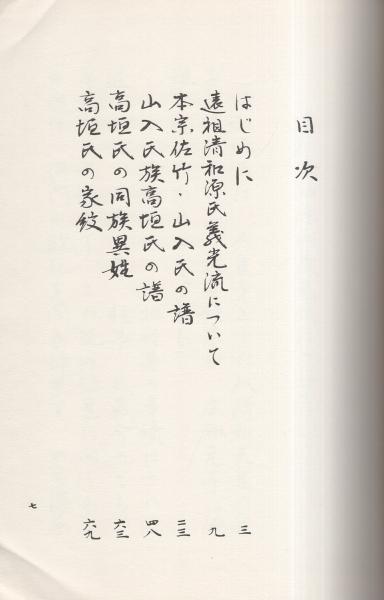 目次
はじめに 三
遠祖清和源氏義光流について 九
本宗佐竹・山入氏の譜 二三
山入氏族高垣氏の譜 四八
高垣氏の同族異姓 六三
高垣氏の家紋 六九
七